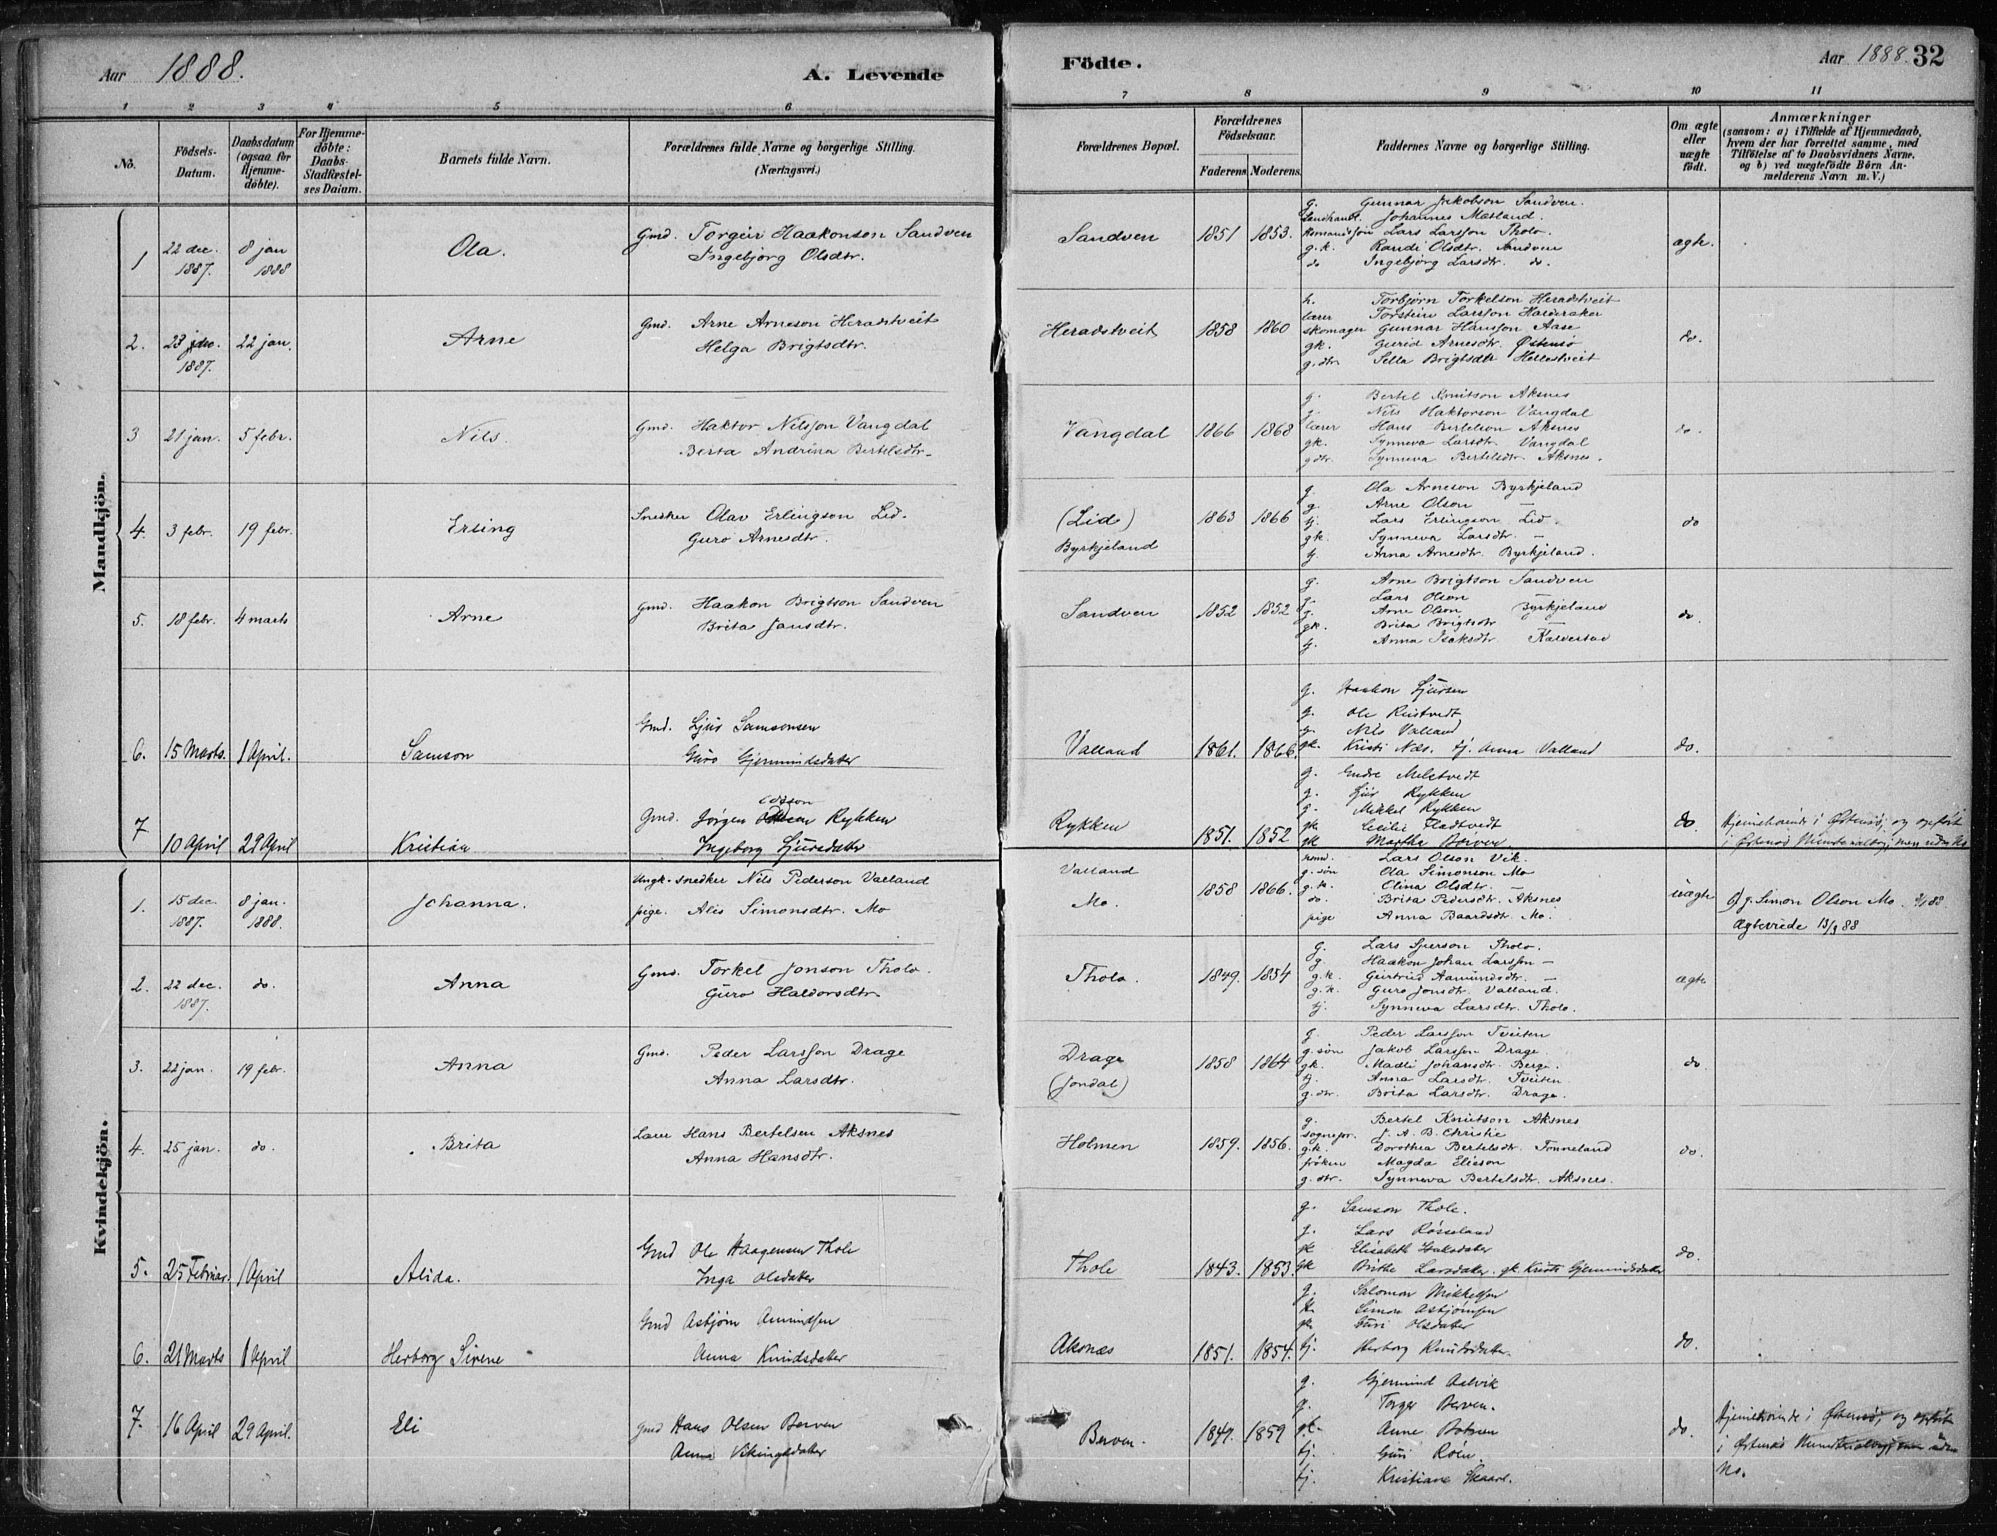 Aar 1888.
A. Levende
Födte.
Aar 1888. 32
1 2 3 4 5 6 7 8 9 10 11
No.
Födsels-Datum.
Daabsdatum (ogsaa for Hjemmedöbte).
For Hjemmedöbte: Daabs-Stadfæstelses Datum.
Barnets fulde Navn.
Forældrenes fulde Navne og borgerlige Stilling. (Næringsvei.)
Forældrenes Bopæl.
Forældrenes Födselsaar.
Faderens Moderens.
Faddernes Navne og borgerlige Stilling.
Om ægte eller uægte födt.
Anmærkninger (saasom: a) i Tilfælde af Hjemmedaab, hvem der har forrettet samme, med Tilföielse af to Daabsvidners Navne, og b) ved uægtefödte Börn Anmelderens Navn m. V.)
Mandkjön.
1 22 dec. 1887. 8 jan 1888 Ola. Gmd. Torgeir Haakonson Sandven
Ingebjörg Olsdtr.
Sandven 1851 1853. ægte.
g. Gunnar Jakobson Sandven.
Landhandl. Johannes Mæland.
Lars Larsson Tholo.
g.k. Randi Olsdtr. Sandven
do Ingebjörg Larsdtr. do.
2. 23 dec. 1887. 22 jan. Arne Gmd. Arne Arneson Heradstveit
Helga Brigtsdtr.
Heradstveit 1858 1860 do.
h. Torbjörn Torkelson Heradstveit
lærer Torstein Larsson Halderaker
skomager Gunnar Hansson Aase
gk. Gurid Arnesdtr. Østensø
g.dtr. Sella Brigtsdtr Hellestveit
3 21 jan. 5 febr. Nils. Gmd. Haktor Nilsson Vangdal
Berta Andrina Bertelsdtr.
Vangdal 1866 1868 do.
g. Bertel Knutson Aksnes
g. Nils Haktorson Vangdal
lærer Hans Bertelson Aksnes
gk. Synneva Larsdtr. Vangdal
gdtr. Synneva Bertelsdtr. Aksnes.
4. 3 febr. 19 febr. Erling Snekker Olav Erlingson Lid.
Guro Arnesdtr.
(Lid) Byrkjeland 1863 1866 do
g. Ola Arneson Byrkjeland
g. Arne Olson —
tj. Lars Erlingson Lid.
gk. Synneva Larsdtr. —
tj. Anna Arnesdtr. Byrkjeland.
5. 18 febr. 4 marts Arne Gmd. Haakon Brigtson Sandven
Brita Jansdtr.
Sandven 1852 1852 do.
g. Arne Brigtson Sandven
g. Lars Olson —
g. Arne Olson Byrkjeland
gk. Brita Brigtsdtr —
tj. Anna Isaksdtr.
6. 15 Marts. 1 April. Samson Gmd. Sjur Samsonsen
Guro Gjermundsdatter
Valland 1861. 1866. do.
g. Haakon Sjursen
g. Ole Rustvedt
g. Nils Valland
gk. Kristi Næs. tj. Anna Valland
7 10 April 29 April Kristian Gmd. Jørgen Rykken
Ingeborg Sjursdatter
Rykken 1851. 1852 do
g. Endre Melstvedt
g. Sjur Rykken
g. Mikkel Rykken
gk Cecilie
gk Martha Berven
Hjemehørende i Østensø, og opført
i Østensø Ministerialbog, men uden No
Kvindekjön.
1. 15 dec. 1887. 8 jan. 1888. Johanna. Ungk. snedker Nils Pederson Valland
pige. Alis Simonsdtr. Mo
Valland
Mo. 1858 1866. uægte
Lars Olson Vik.
g. søn Ola Simonson Mo
g.k. Olina Olsdtr. —
do. Brita Pedersdtr. Aksnes
pige Anna Baardsdtr. Mo.
g. Simon Olson Mo.
Ægteviede 13/9 88
2. 22 dec. 1887. do. Anna Gmd. Torkel Jonson Tholo.
Guro Haldorsdtr.
Tholo. 1849. 1854 ægte
g. Lars Sjurson Tholo.
g. Haakon Johan Larsson —
g.k. Geirtrud Aamundsdtr. —
g.k. Guro Jonsdtr. Valland.
tj. Synneva Larsdtr. Tholo.
3. 22 jan. 19 febr. Anna Gmd. Peder Larsson Drage
Anna Larsdtr.
Drage (Jondal) 1858 1864 do.
g. Peder Larsson Tveiten
g. søn Jakob Larsson Drage
gk. Madli Johansdtr. Berge
tj. Anna Larsdtr. Tveiten.
g. dtr. Brita Larsdtr. Drage.
4. 25 jan. do. Brita Lærer Hans Bertelsen Aksnes
Anna Hansdtr.
Holmen 1859. 1856. do.
g. Bertel Knutson Aksnes
sognepr. J. A. B. Christie
g.k. Dorothea Bertelsdtr. Tonneland
frøken Magda Elieson
g. dtr. Synneva Bertelsdtr. Aksnes.
5. 25 Februar. 1 April Alida. Gmd Ole Haagensen Thole
Inga Olsdatter
Thole 1843. 1853. do
g. Samson Thole.
g. Lars Røsseland
gk Elisabeth Isaksdatter
gk Brithe Larsdatter. gk. Kristi Gjermundsdatter
6. 21 Marts 1 April Herborg Sirene Gmd Asbjørn Amundsen
Anna Knudsdatter
Aksnæs 1851. 1854. do.
g. Salomon Mikkelsen
Simon Asbjørnsen
gk Guri Olsdatter
tj. Herborg Knudsdatter.
7. 16 April 29 April. Eli Gmd Hans Olsen Berven
Anna Vikingsdatter
Berven. 1849. 1859 do.
g. Gjermund Aalvik
g. Torger Berven.
gk. Anne Botnen
tj. Guri Røen.
tj. Kristiane Skaare.
Hjemehørende i Østensø, og opført
i Østensø Ministerialbog, men uden
No.